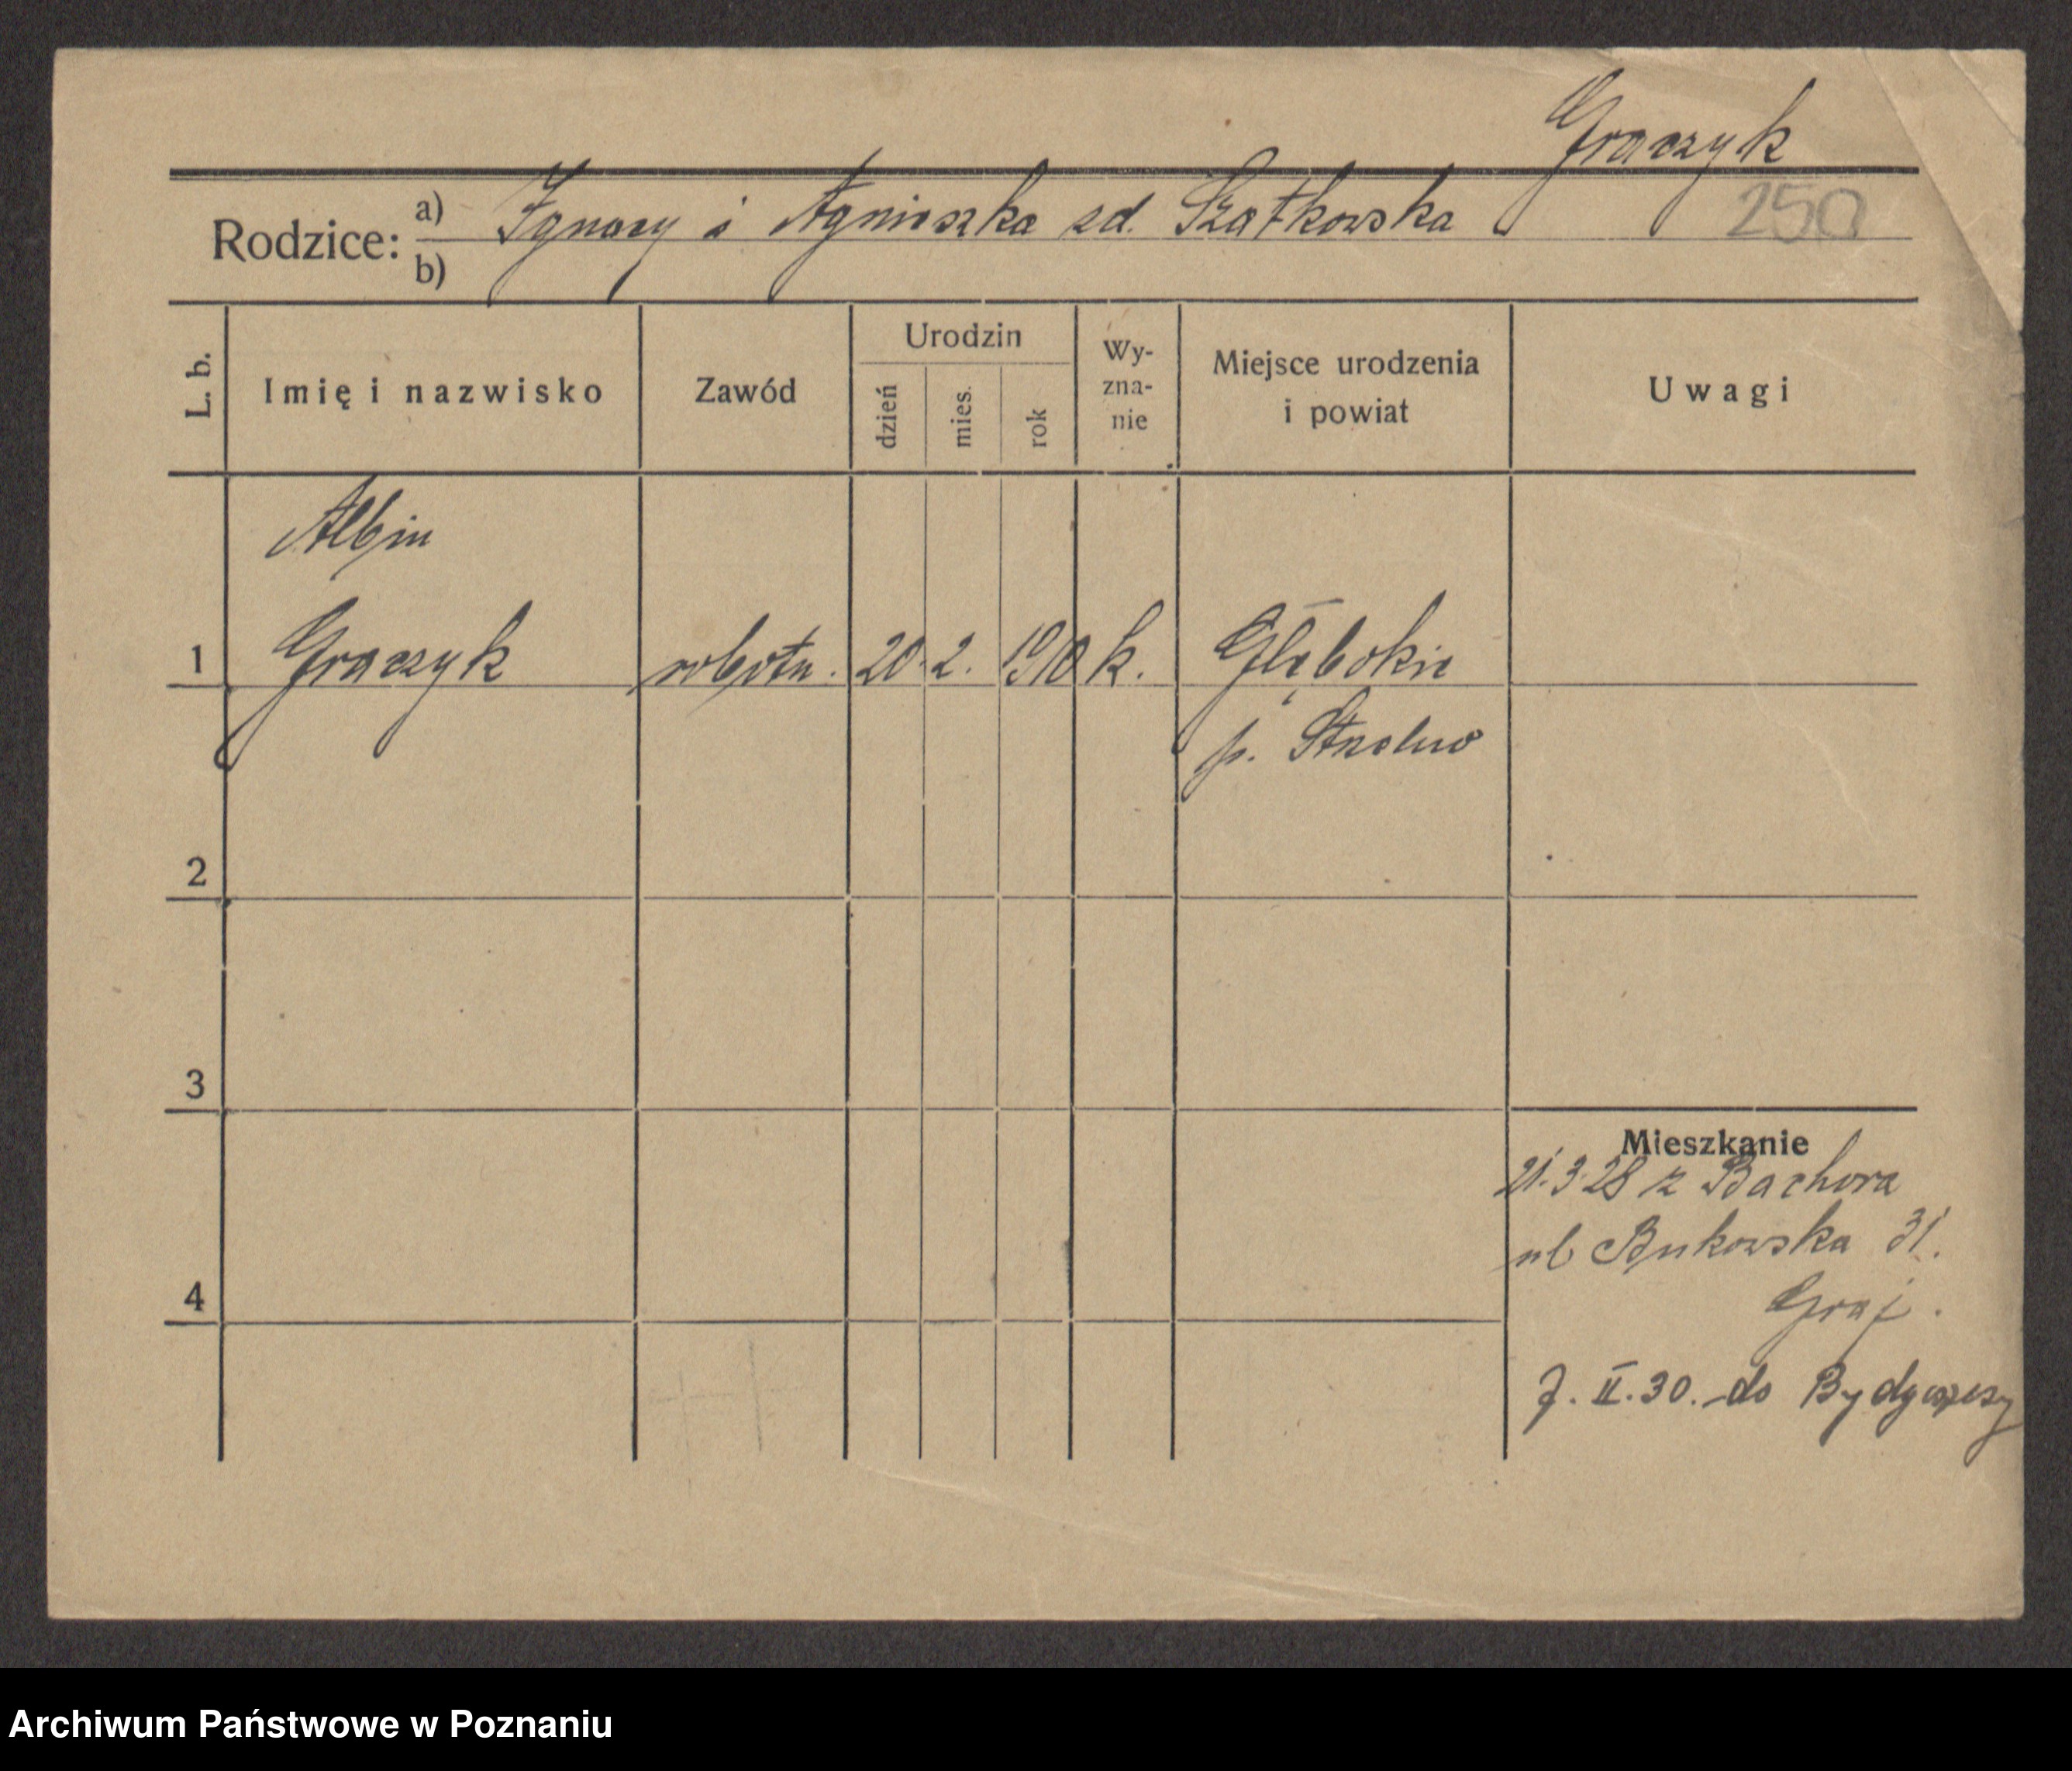 Graczyk
250
Rodzice: a) Ignacy i Agnieszka zd. Szatkowska
b)
L. b. Imię i nazwisko Zawód Urodzin dzień mies. rok Wy-zna-nie Miejsce urodzenia i powiat Uwagi
Albin
1 Graczyk robotn. 20. 2. 1910 k. Głębokie
p. Strzelno
2
3
Mieszkanie
21.3.28 z Bachora
ul Bukowska 31.
4
7. II. 30. do Bydgoszczy
Archiwum Państwowe w Poznaniu